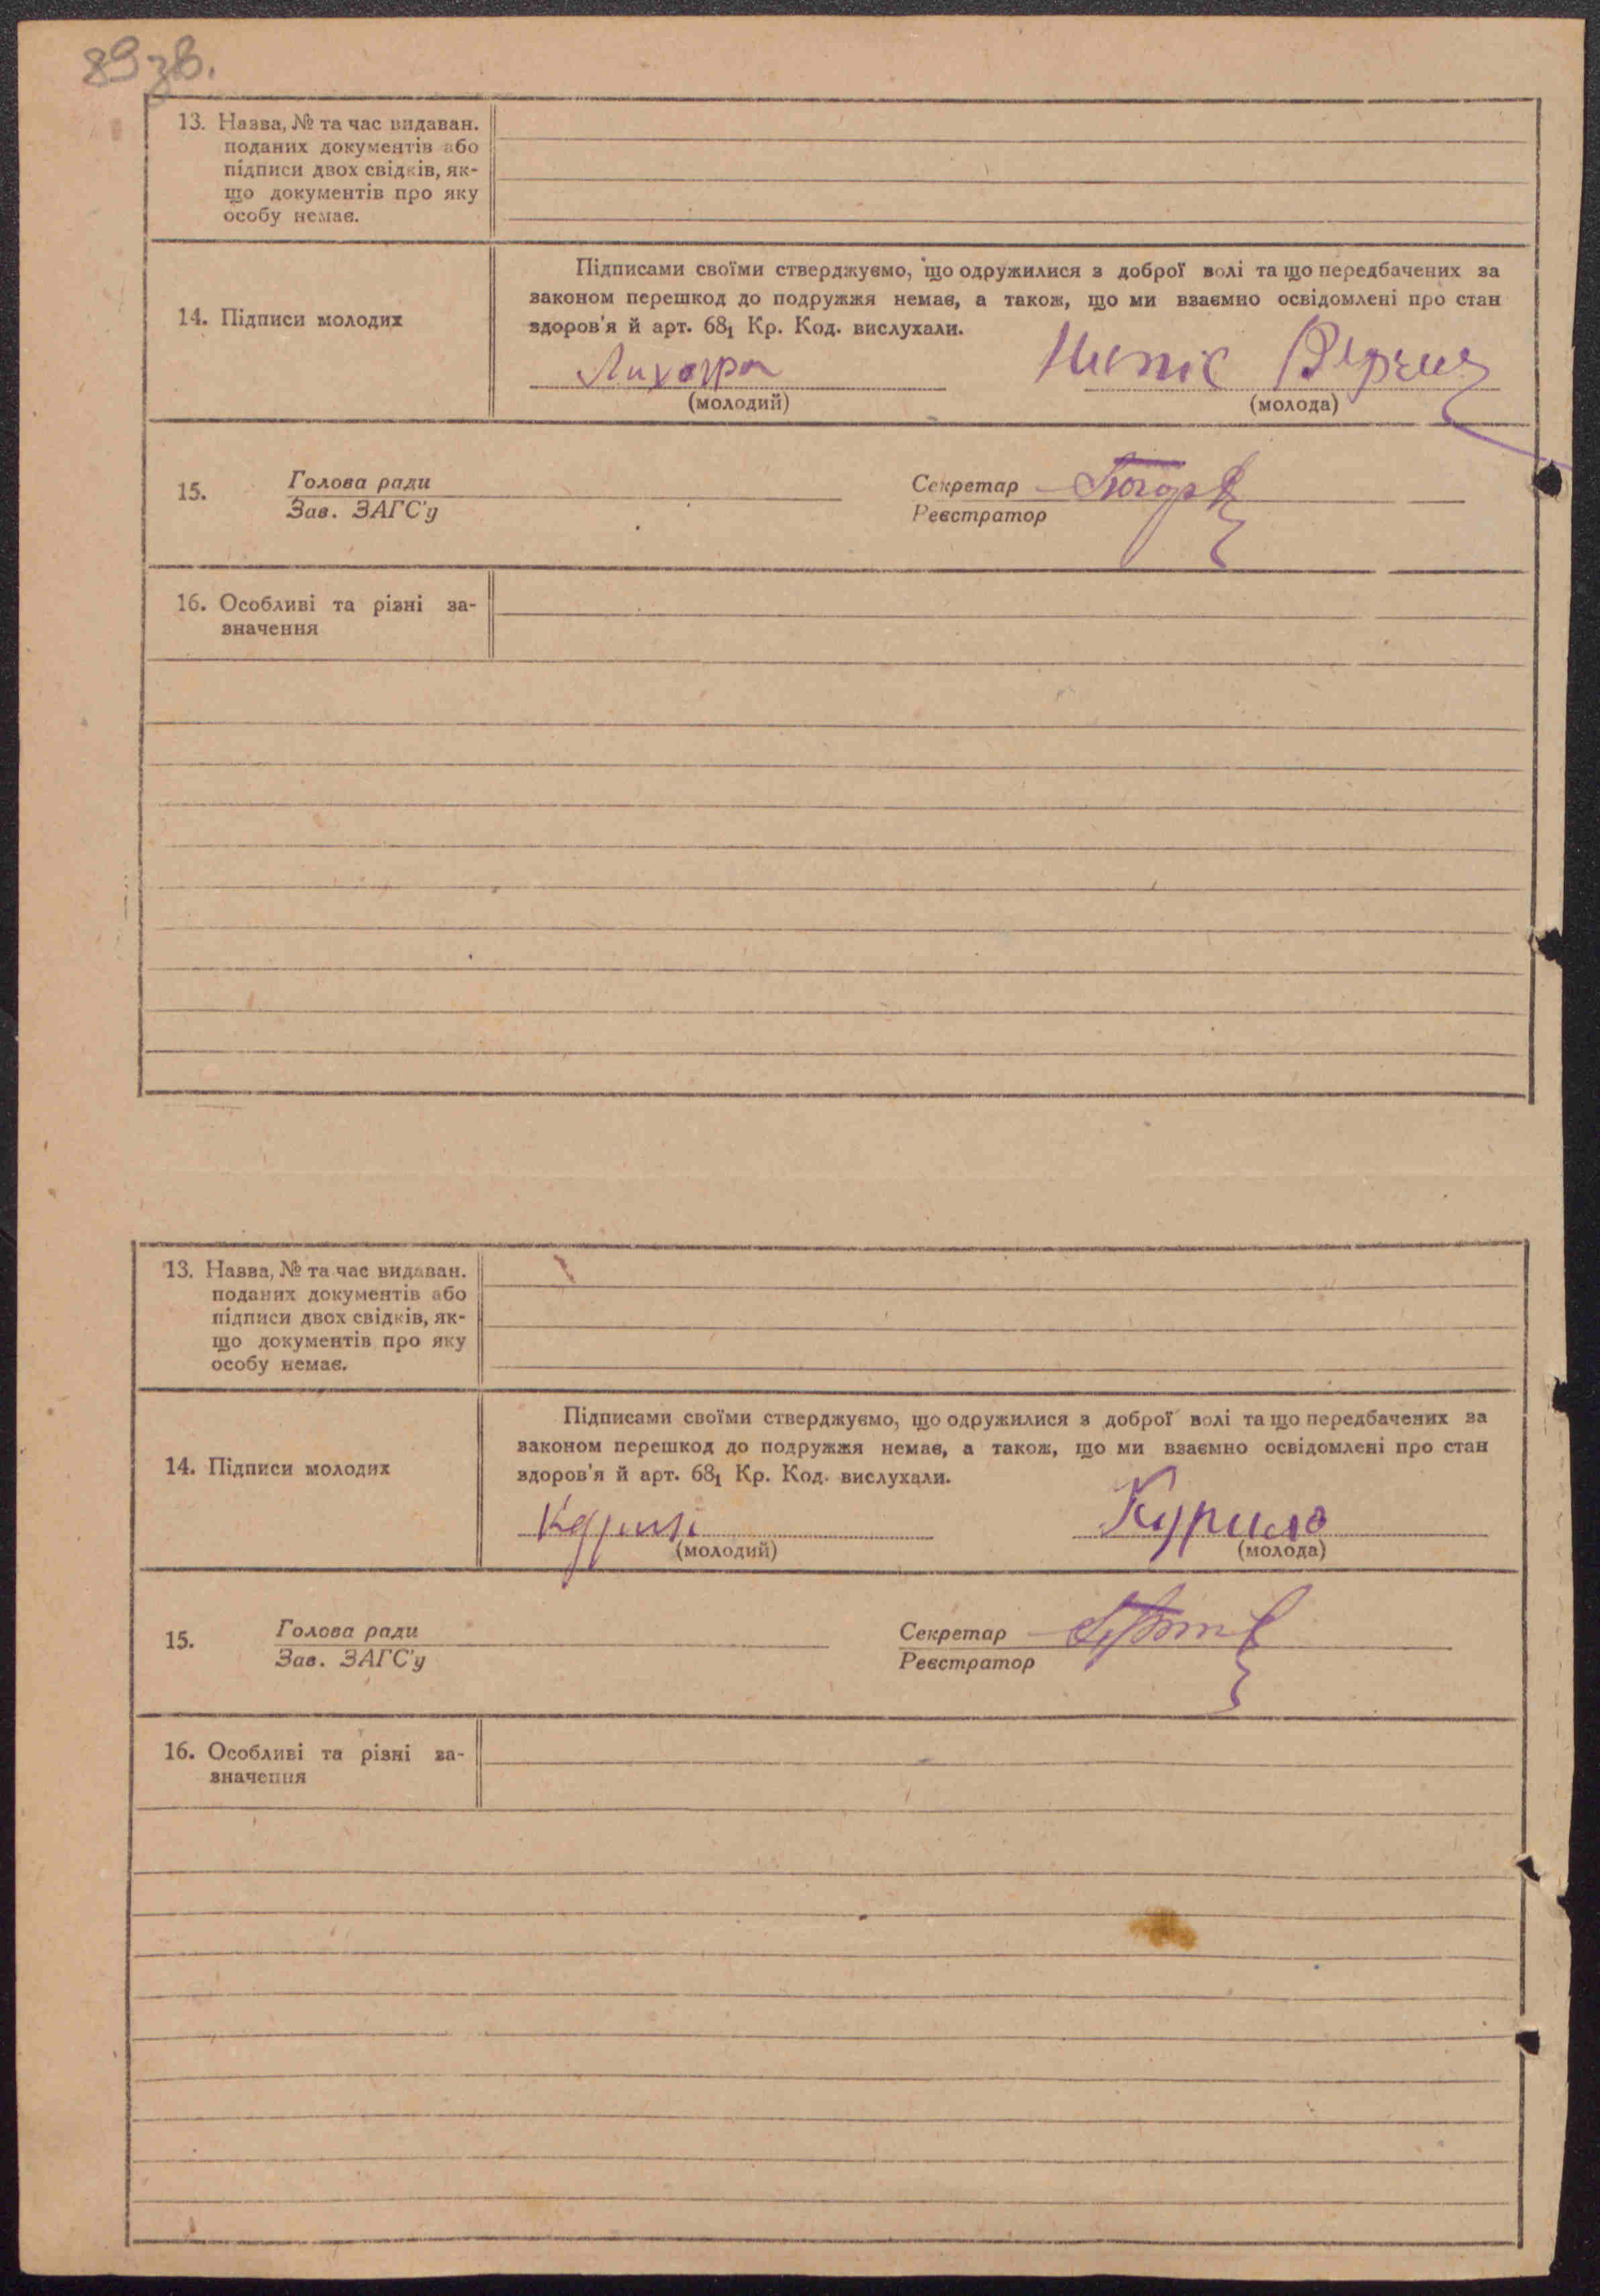 89 зв.
13. Назва, № та час видаван.
поданих документів або
підписи двох свідків, як-
що документів про яку
особу немає.
14. Підписи молодих
Підписами своїми стверджуємо, що одружилися з доброї волі та що передбачених за
законом перешкод до подружжя немає, а також, що ми взаємно освідомлені про стан
здоров'я й арт. 68₁ Кр. Код. вислухали.
(молодий) (молода)
15. Голова ради Секретар
Зав. ЗАГС'у Реєстратор
16. Особливі та різні за-
значення
13. Назва, № та час видаван.
поданих документів або
підписи двох свідків, як-
що документів про яку
особу немає.
14. Підписи молодих
Підписами своїми стверджуємо, що одружилися з доброї волі та що передбачених за
законом перешкод до подружжя немає, а також, що ми взаємно освідомлені про стан
здоров'я й арт. 68₁ Кр. Код. вислухали.
Курило
(молодий) (молода)
15. Голова ради Секретар
Зав. ЗАГС'у Реєстратор
16. Особливі та різні за-
значення